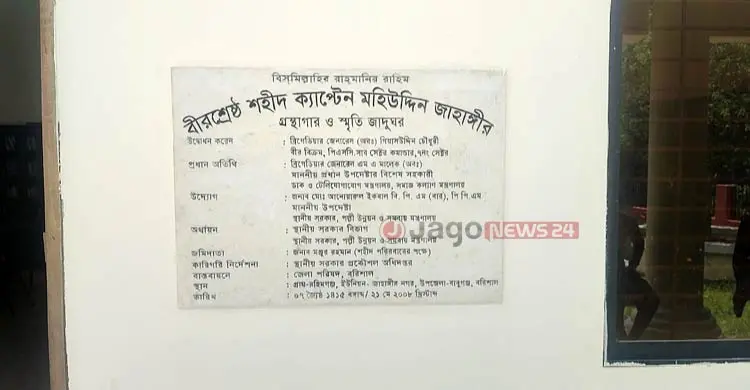 বিস্‌মিল্লাহির রাহ্‌মানির রাহিম
বীরশ্রেষ্ঠ শহীদ ক্যাপ্টেন মহিউদ্দিন জাহাঙ্গীর
গ্রন্থাগার ও স্মৃতি জাদুঘর
উদ্বোধন করেন : ব্রিগেডিয়ার জেনারেল (অবঃ) গিয়াসউদ্দিন চৌধুরী
বীর বিক্রম, পিএসসি, সাব সেক্টর কমান্ডার, ৭নং সেক্টর
প্রধান অতিথি : ব্রিগেডিয়ার জেনারেল এম এ মালেক (অবঃ)
মাননীয় প্রধান উপদেষ্টার বিশেষ সহকারী
ডাক ও টেলিযোগাযোগ মন্ত্রণালয়, সমাজ কল্যাণ মন্ত্রণালয়
উদ্যোগ : জনাব মোঃ আনোয়ারুল ইকবাল বি. পি. এম (বার), পি পি এম
মাননীয় উপদেষ্টা
স্থানীয় সরকার, পল্লী উন্নয়ন ও সমবায় মন্ত্রণালয়
অর্থায়ন : স্থানীয় সরকার বিভাগ
স্থানীয় সরকার, পল্লী উন্নয়ন ও সমবায় মন্ত্রণালয়
জমিদাতা : জনাব মঞ্জুর রহমান (শহীদ পরিবারের পক্ষে)
কারিগরি নির্দেশনা : স্থানীয় সরকার প্রকৌশল অধিদপ্তর
বাস্তবায়নে : জেলা পরিষদ, বরিশাল
স্থান : গ্রাম-রহিমগঞ্জ, ইউনিয়ন- জাহাঙ্গীর নগর, উপজেলা-বাবুগঞ্জ, বরিশাল
তারিখ : ০৭ জ্যৈষ্ঠ ১৪১৫ বঙ্গাব্দ/ ২১ মে ২০০৮ খ্রিস্টাব্দ
Jago NEWS 24